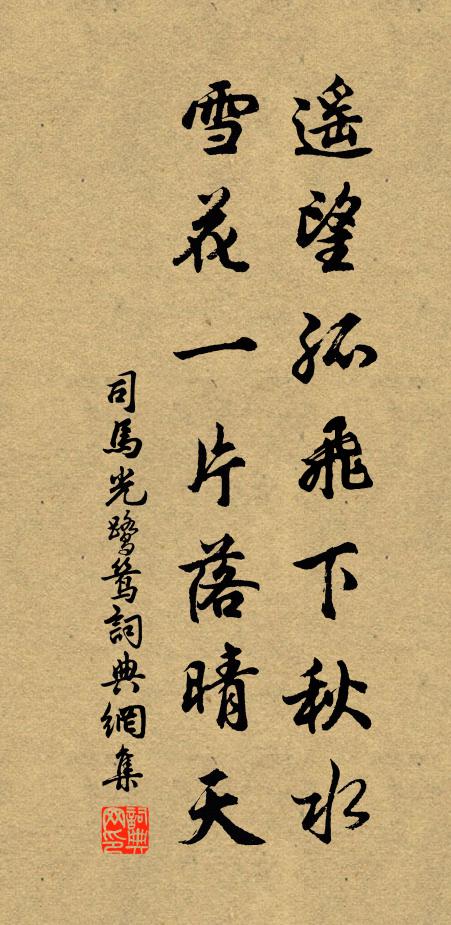 遥望孤飛下秋水
雪花一片落晴天
司馬光鷺鷥詞典網集
詞典网印